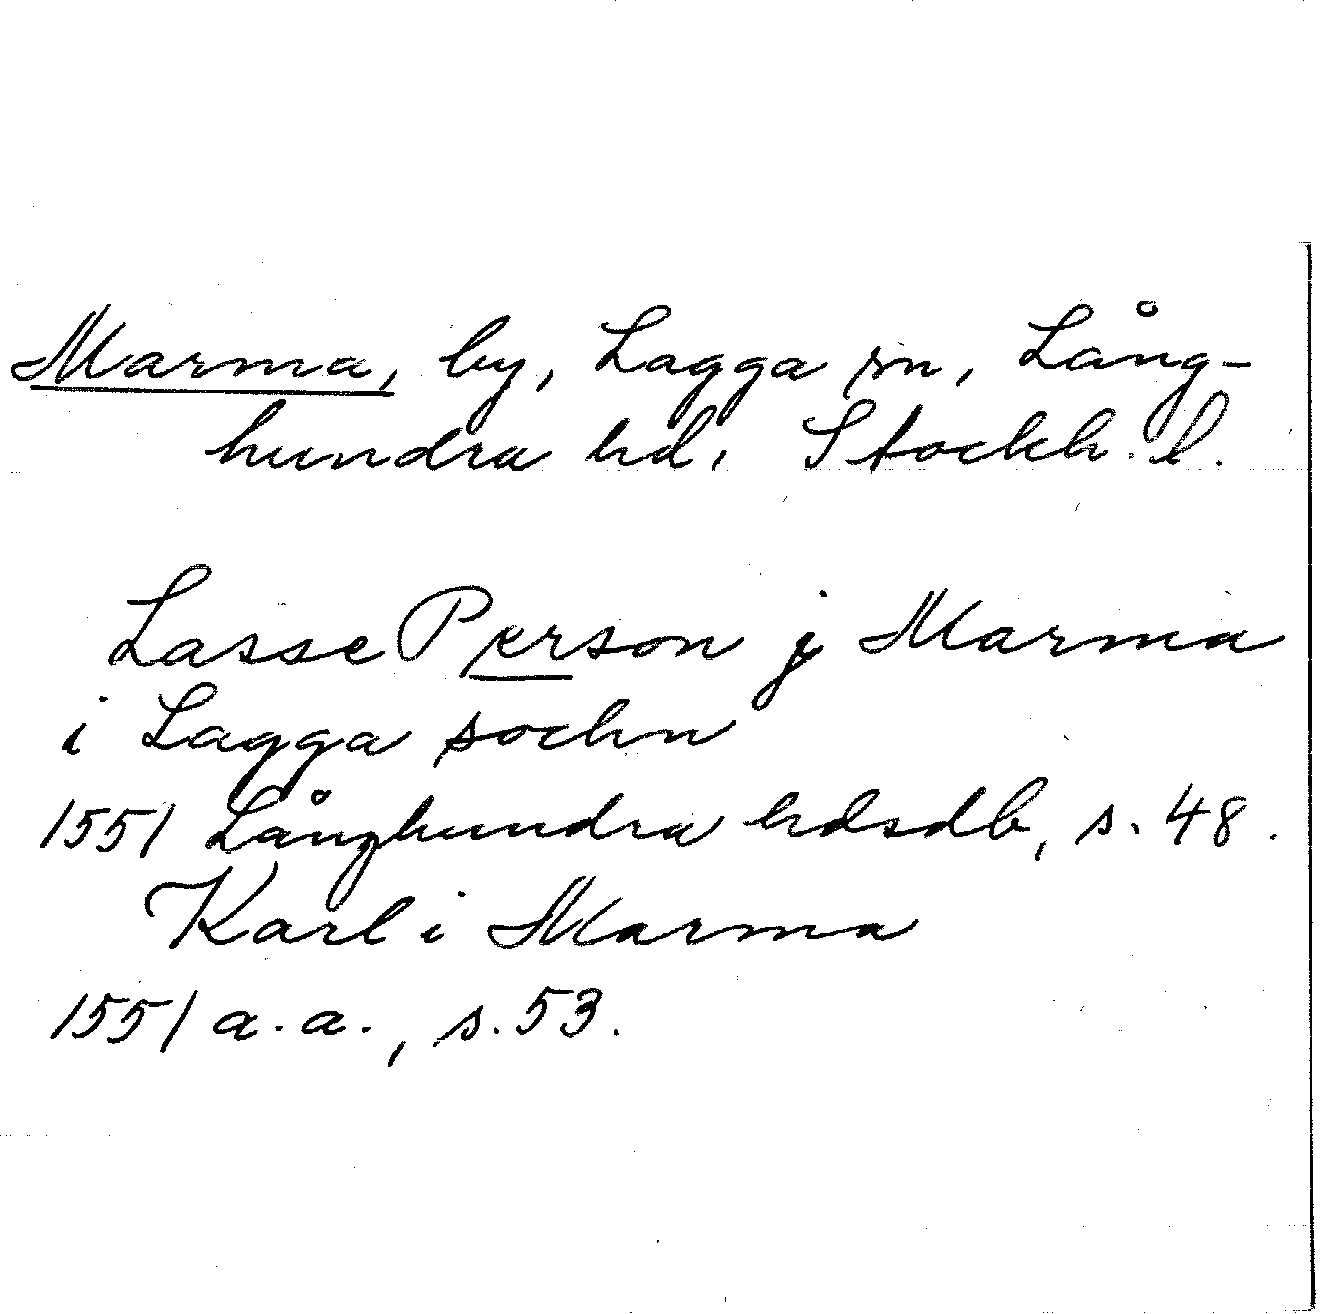 Marma, by, Lagga sn, Lång-
hundra hd, Stockh. l.
Lasse Person j Marma
i Lagga sochn
1551 Långhundra hdsdb, s. 48.
Karl i Marma
1551 a.a., s. 53.